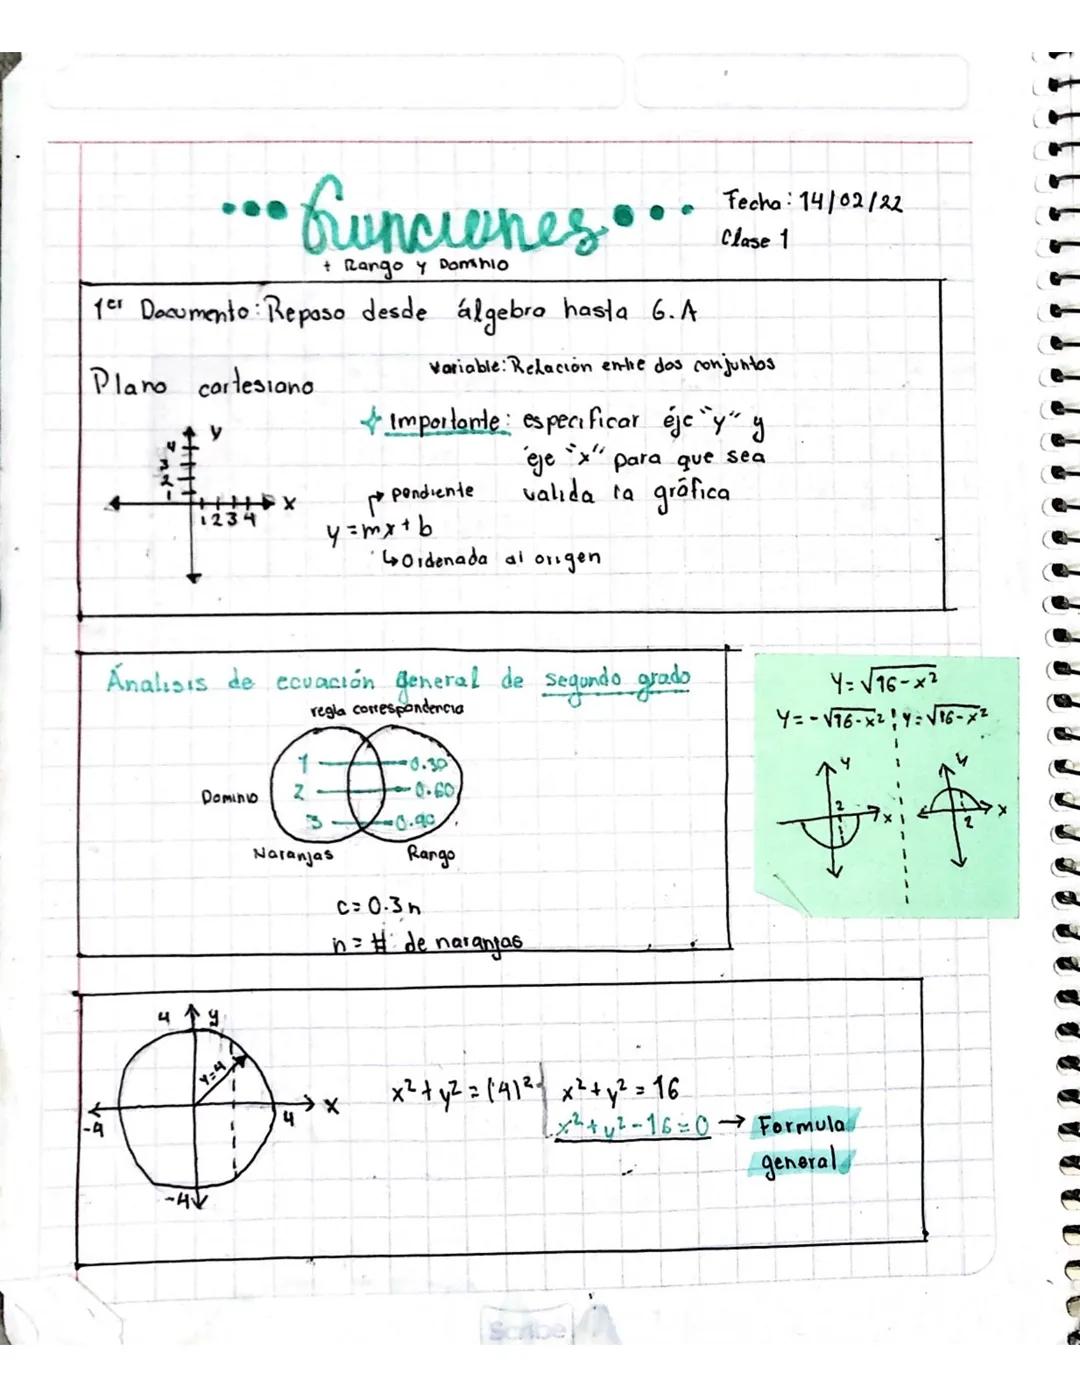 Funciones
Fecha: 14/02/22
Clase 1
+ Rango y Dominio
1er Documento: Repaso desde álgebra hasta G.A
Plano cartesiano
Variable: Relación entre dos conjuntos
Importante: especificar éje "y" y
eje "x" para que sea
valida la gráfica
y
4
3
2
1
x
1 2 3 4
pendiente
y=mx+b
↳Ordenada al origen
Ánalisis de ecuación general de segundo grado
regla correspondencia
1 0.30
Dominio 2 0.60
3 0.90
Naranjas Rango
c=0.3n
n=# de naranjas
Y=√16-x²
Y=-√16-x² Y=√16-x²
y y
2 x 2 x
4 y
r=4
-4 4 x
-4
x²+y²=(4)² x²+y²=16
x²+y²-16=0 → Formula
general
Scribe